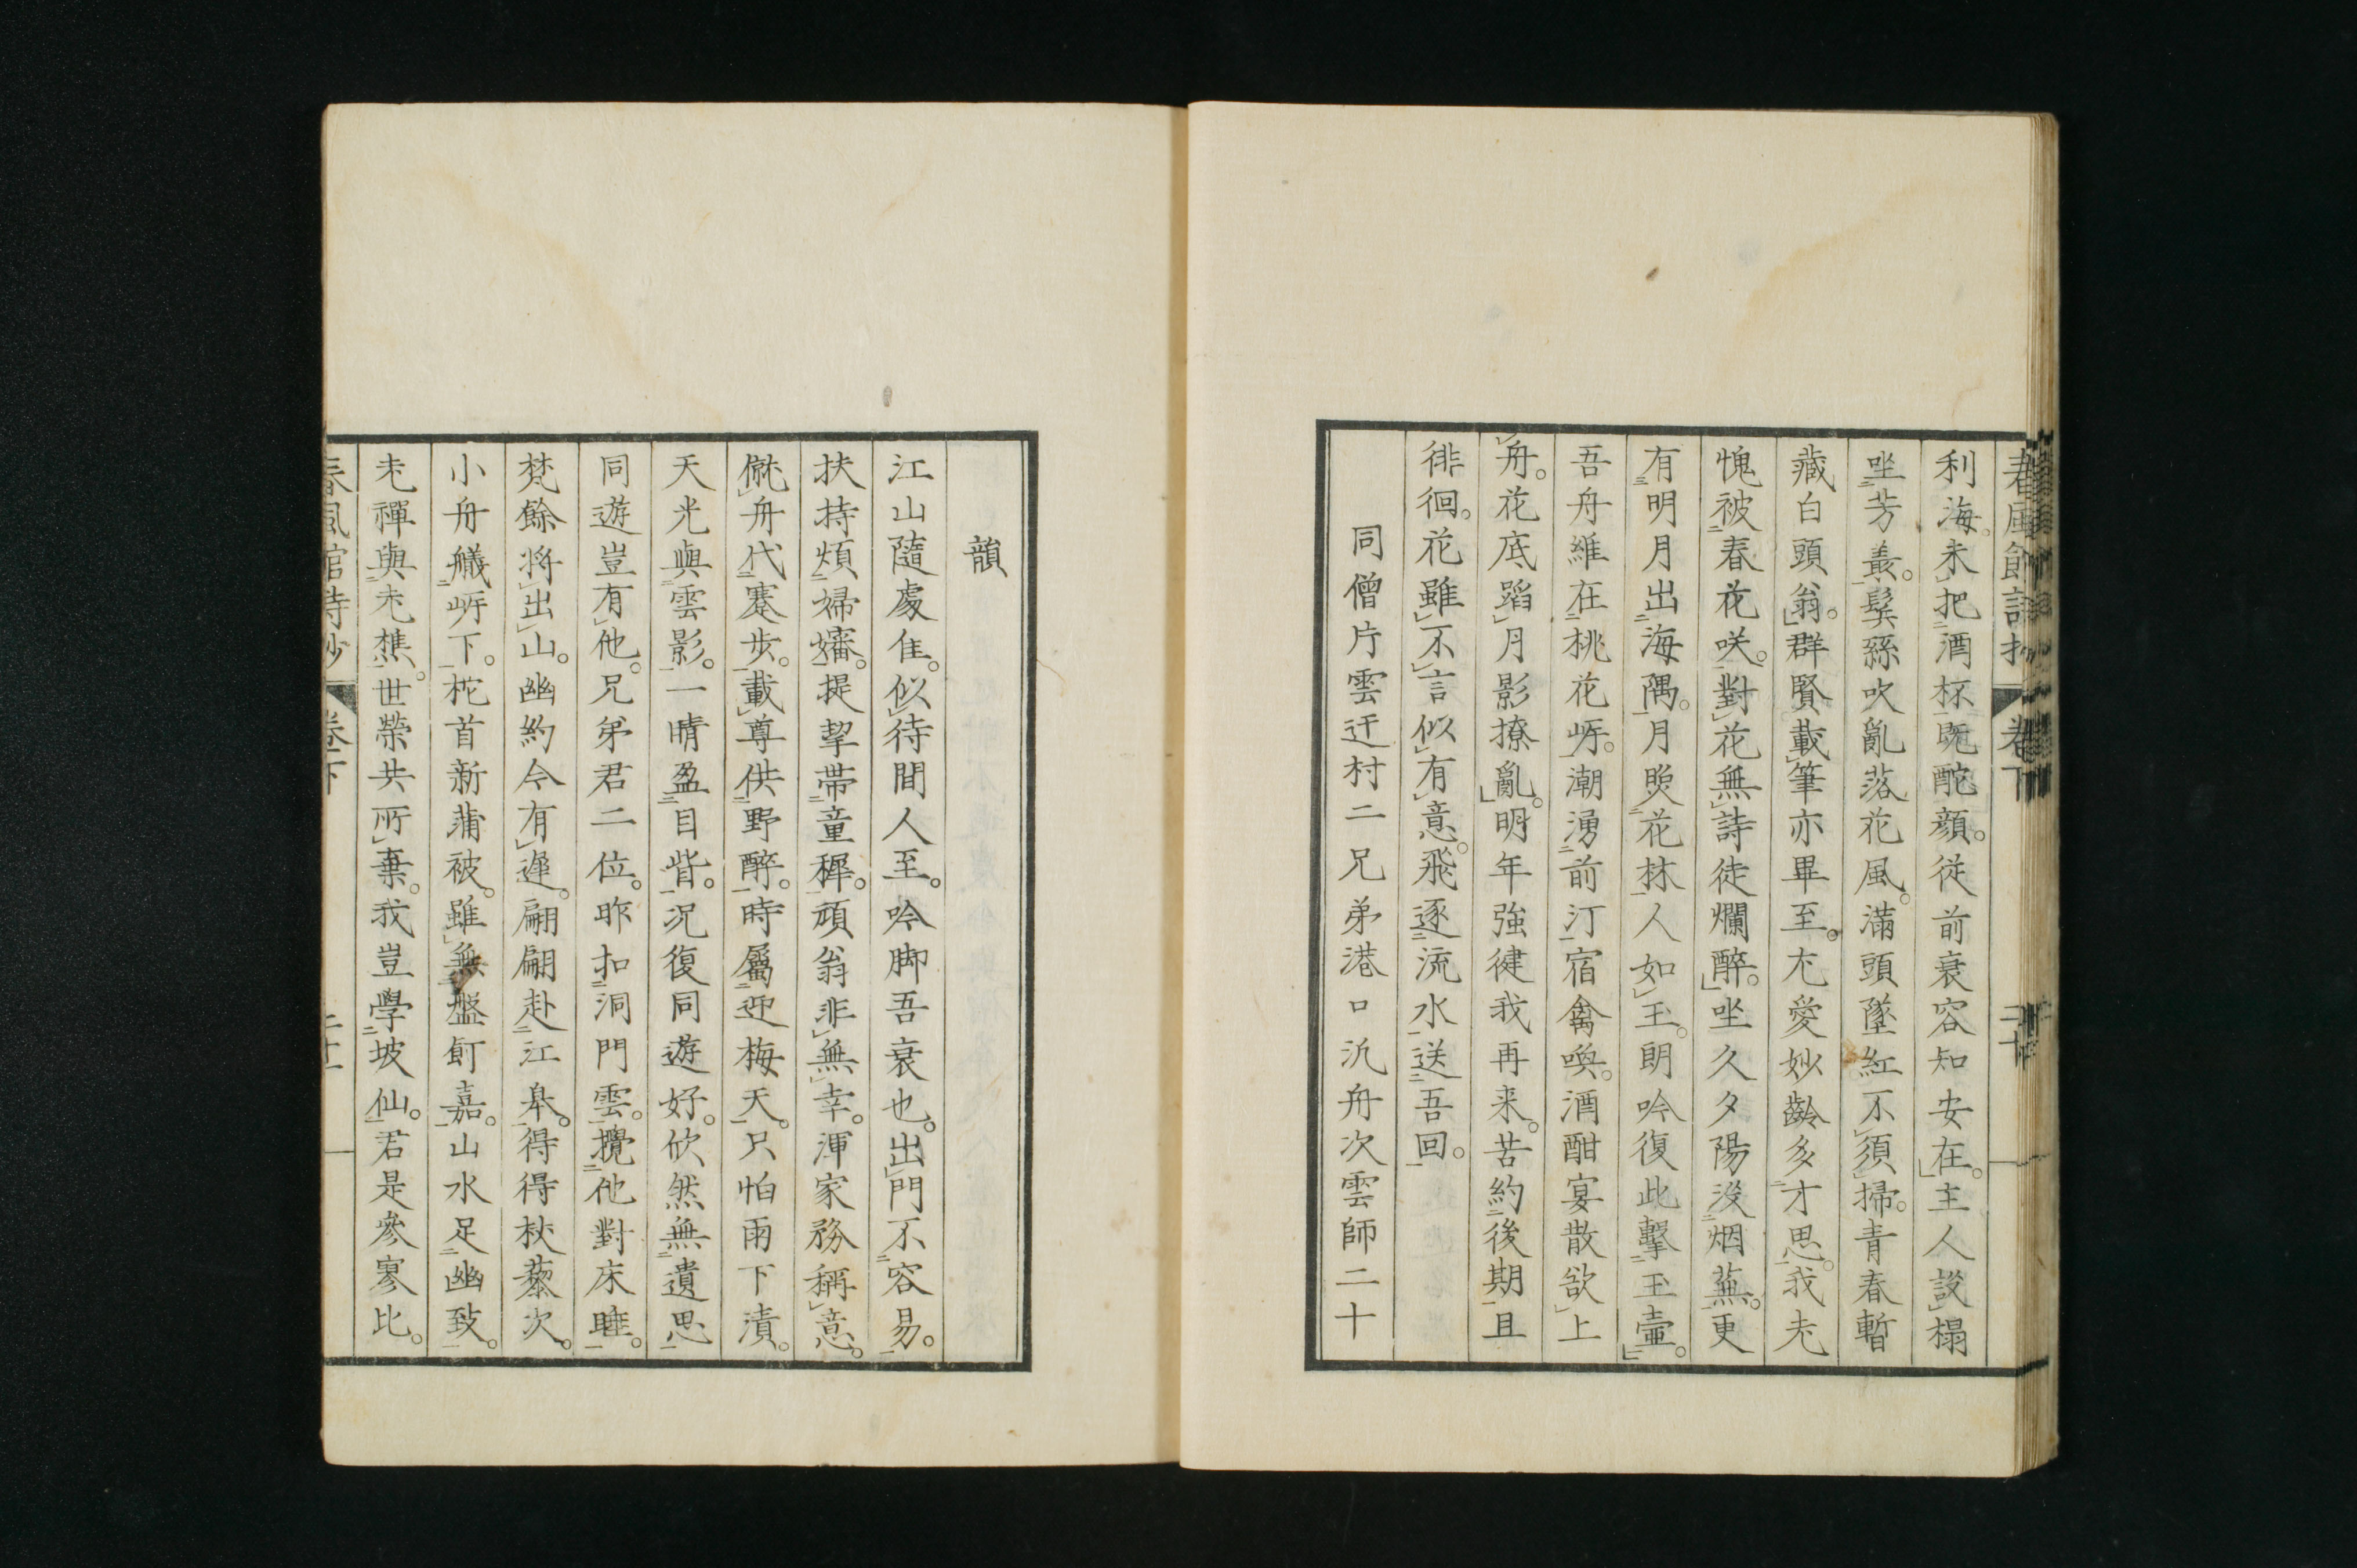 利海。未把酒杯既酡顔。従前衰容知安在。主人設榻
坐芳叢。鬓絲吹亂落花風。滿頭墜紅不須掃。青春暫
藏白頭翁。群賢載筆亦畢至。尤愛妙齡多才思。我老
愧被春花咲。對花無詩徒爛醉。坐久夕陽沒烟蕪。更
有明月出海隅。月照花林人如玉。朗吟復此擊玉壷。
吾舟維在桃花岸。潮湧前汀宿禽喚。酒酣宴散欲上
舟。花底蹈月影撩亂。明年強健我再来。苦約後期且
徘徊。花雖不言似有意。飛逐流水送吾回。
同僧片雲迂村二兄弟港口汎舟次雲師二十
韻
江山隨處佳。似待間人至。吟脚吾衰也。出門不容易。
扶持煩婦嬸。提挈帯童穉。頑翁非無幸。渾家務稱意。
僦舟代蹇歩。載尊供野醉。時屬迎梅天。只怕雨下漬。
天光與雲影。一晴盈目眥。況復同遊好。欣然無遺思
同遊豈有他。兄弟君二位。昨扣洞門雲。攪他對床睡。
梵餘将出山。幽約今有遅。翩翩赴江皐。得得杖藜次。
小舟艤岸下。柁首新蒲被。雖無盤飣嘉。山水足幽致。
老禪與老樵。世榮共所棄。我豈學坡仙。君是參寥比。
春風館詩抄 卷下